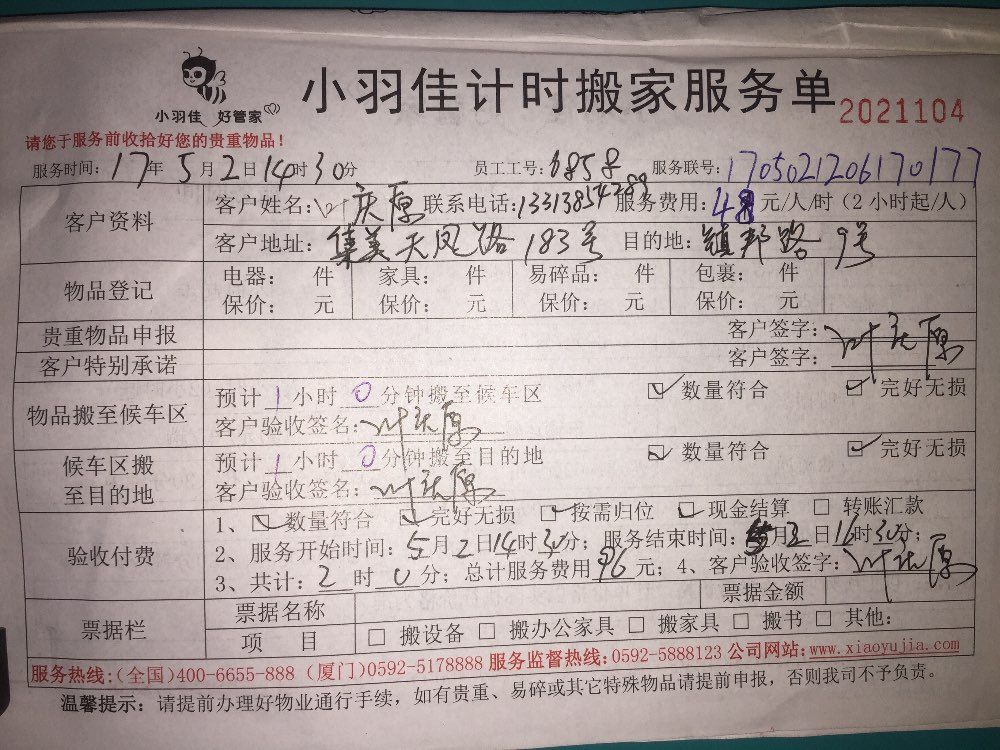 小羽佳 好管家
小羽佳计时搬家服务单 2021104
请您于服务前收拾好您的贵重物品！
服务时间：17年5月2日14时30分 员工工号：685号 服务联号：1705021206170177
客户资料
客户姓名：叶庆原 联系电话：13313854289 服务费用：48元/人/时（2小时起/人）
客户地址：集美天凤路183号 目的地：镇邦路9号
物品登记
电器： 件 家具： 件 易碎品： 件 包裹： 件
保价： 元 保价： 元 保价： 元 保价： 元
贵重物品申报 客户签字：
客户特别承诺 客户签字：叶庆原
物品搬至候车区
预计1小时0分钟搬至候车区 ☑数量符合 ☑完好无损
客户验收签名：叶庆原
候车区搬至目的地
预计1小时0分钟搬至目的地 ☑数量符合 ☑完好无损
客户验收签名：叶庆原
验收付费
1、☑数量符合 ☑完好无损 ☑按需归位 ☑现金结算 □转账汇款
2、服务开始时间：5月2日14时30分；服务结束时间：5月2日16时30分；
3、共计：2时0分；总计服务费用96元；4、客户验收签字：叶庆原
票据栏
票据名称 票据金额
项 目 □搬设备 □搬办公家具 □搬家具 □搬书 □其他：
服务热线：（全国）400-6655-888 （厦门）0592-5178888 服务监督热线：0592-5888123 公司网站：www.xiaoyujia.com
温馨提示：请提前办理好物业通行手续，如有贵重、易碎或其它特殊物品请提前申报，否则我司不予负责。